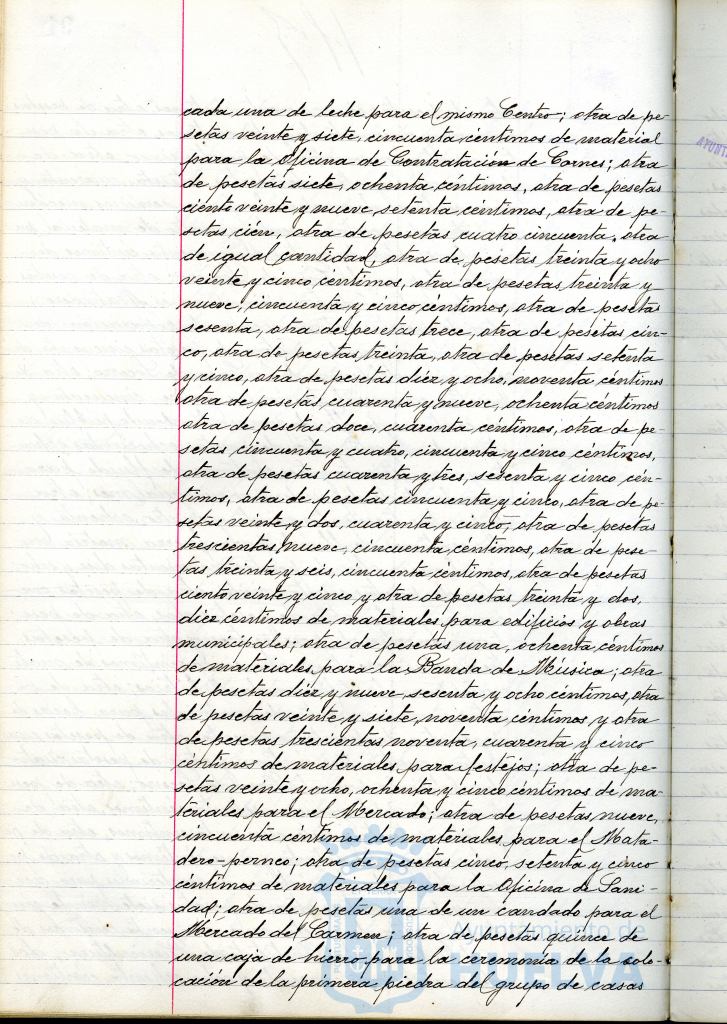 cada una de leche para el mismo Centro; otra de pe-
setas veinte y siete, cincuenta céntimos de material
para la Oficina de Contratación de Carnes; otra
de pesetas siete, ochenta céntimos, otra de pesetas
ciento veinte y nueve, setenta céntimos, otra de pe-
setas cien, otra de pesetas cuatro cincuenta, otra
de igual cantidad, otra de pesetas treinta y ocho
veinte y cinco céntimos, otra de pesetas treinta y
nueve, cincuenta y cinco céntimos, otra de pesetas
sesenta, otra de pesetas trece, otra de pesetas cin-
co, otra de pesetas treinta, otra de pesetas setenta
y cinco, otra de pesetas diéz y ocho, noventa céntimos
otra de pesetas cuarenta y nueve, ochenta céntimos
otra de pesetas doce, cuarenta céntimos, otra de pe-
setas cincuenta y cuatro, cincuenta y cinco céntimos,
otra de pesetas cuarenta y tres, sesenta y cinco cén-
timos, otra de pesetas cincuenta y cinco, otra de pe-
setas veinte y dos, cuarenta y cinco, otra de pesetas
trescientas nueve, cincuenta céntimos, otra de pese-
tas treinta y seis, cincuenta céntimos, otra de pesetas
ciento veinte y cinco y otra de pesetas treinta y dos,
diéz céntimos de materiales para edificios y obras
municipales; otra de pesetas una, ochenta céntimos
de materiales para la Banda de Música; otra
de pesetas diéz y nueve, sesenta y ocho céntimos, otra
de pesetas veinte y siete, noventa céntimos y otra
de pesetas trescientas noventa, cuarenta y cinco
céntimos de materiales para festejos; otra de pe-
setas veinte y ocho, ochenta y cinco céntimos de ma-
teriales para el Mercado; otra de pesetas nueve,
cincuenta céntimos de materiales para el Mata-
dero-perneo; otra de pesetas cinco, setenta y cinco
céntimos de materiales para la Oficina de Sani-
dad; otra de pesetas una de un candado para el
Mercado del Carmen; otra de pesetas quince de
una caja de hierro para la ceremonia de la colo-
cación de la primera piedra del grupo de casas
Ayuntamiento de
HUELVA